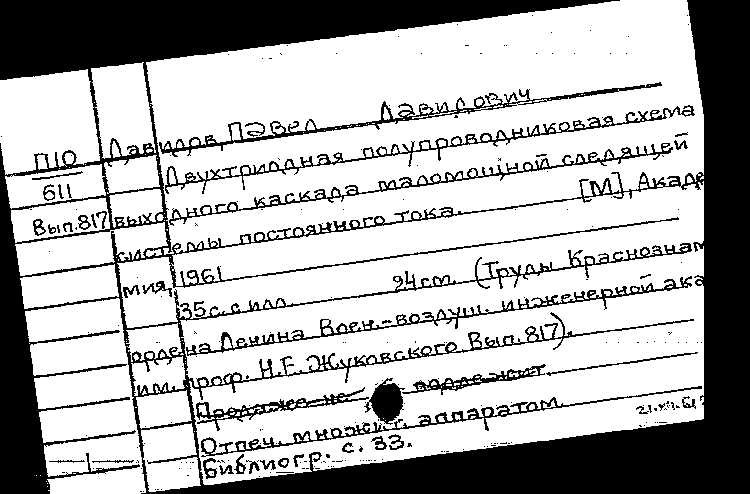 Давидов, Павел Давидович
П10
611
Вып.817
Двухтриодная полупроводниковая схема
выходного каскада маломощной следящей
системы постоянного тока. [М], Акаде
мия, 1961
35с. с илл. 24см. (Труды Краснознам
ордена Ленина Воен.-воздуш. инженерной ака
им. проф. Н.Е. Жуковского Вып. 817).
Продаже не подлежит.
Отпеч. множит. аппаратом
Библиогр. с. 33.
1